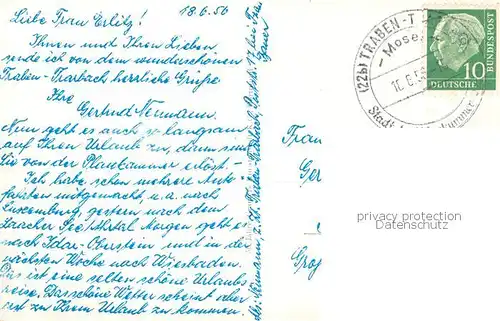 Liebe Frau Erlitz! 18.6.56
Ihnen und Ihren Lieben
sende ich von dem wunderschönen
Traben-Trarbach herrliche Grüße
Ihre
Gertrud Neumann.
Nun geht es auch so langsam
auf Ihren Urlaub zu, dann sind
Sie von der erlöst.-
Ich habe schon mehrere Auto-
fahrten mitgemacht, u.a. nach
Luxemburg, gestern nach dem
Laacher See/Ahrtal Morgen geht es
nach Idar-Oberstein und in der
nächsten Woche nach Wiesbaden.
Das ist eine selten schöne Urlaubs
reise. Das schöne Wetter scheint aber
erst zu Ihrem Urlaub zu kommen.
Neumann, z. Zt. Traben-Trarbach, bei Frau
(22b) TRABEN-T
-Mosel
10
DEUTSCHE
BUNDESPOST
Stadt
Frau
Ger
Groß
privacy protection
Datenschutz